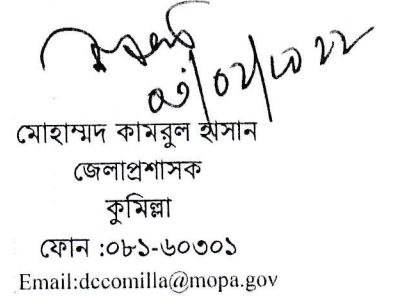 মোহাম্মদ কামরুল হাসান
জেলাপ্রশাসক
কুমিল্লা
ফোন :০৮১-৬০৩০১
Email:dccomilla@mopa.gov